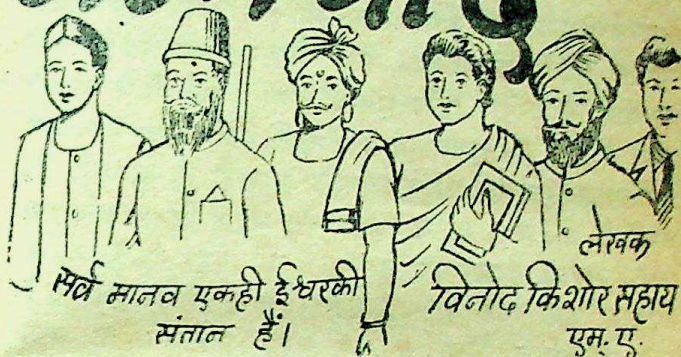 सर्व मानव एकही ईश्वरकी
संतान हैं।
लेखक
विनोद किशोर सहाय
एम. ए.